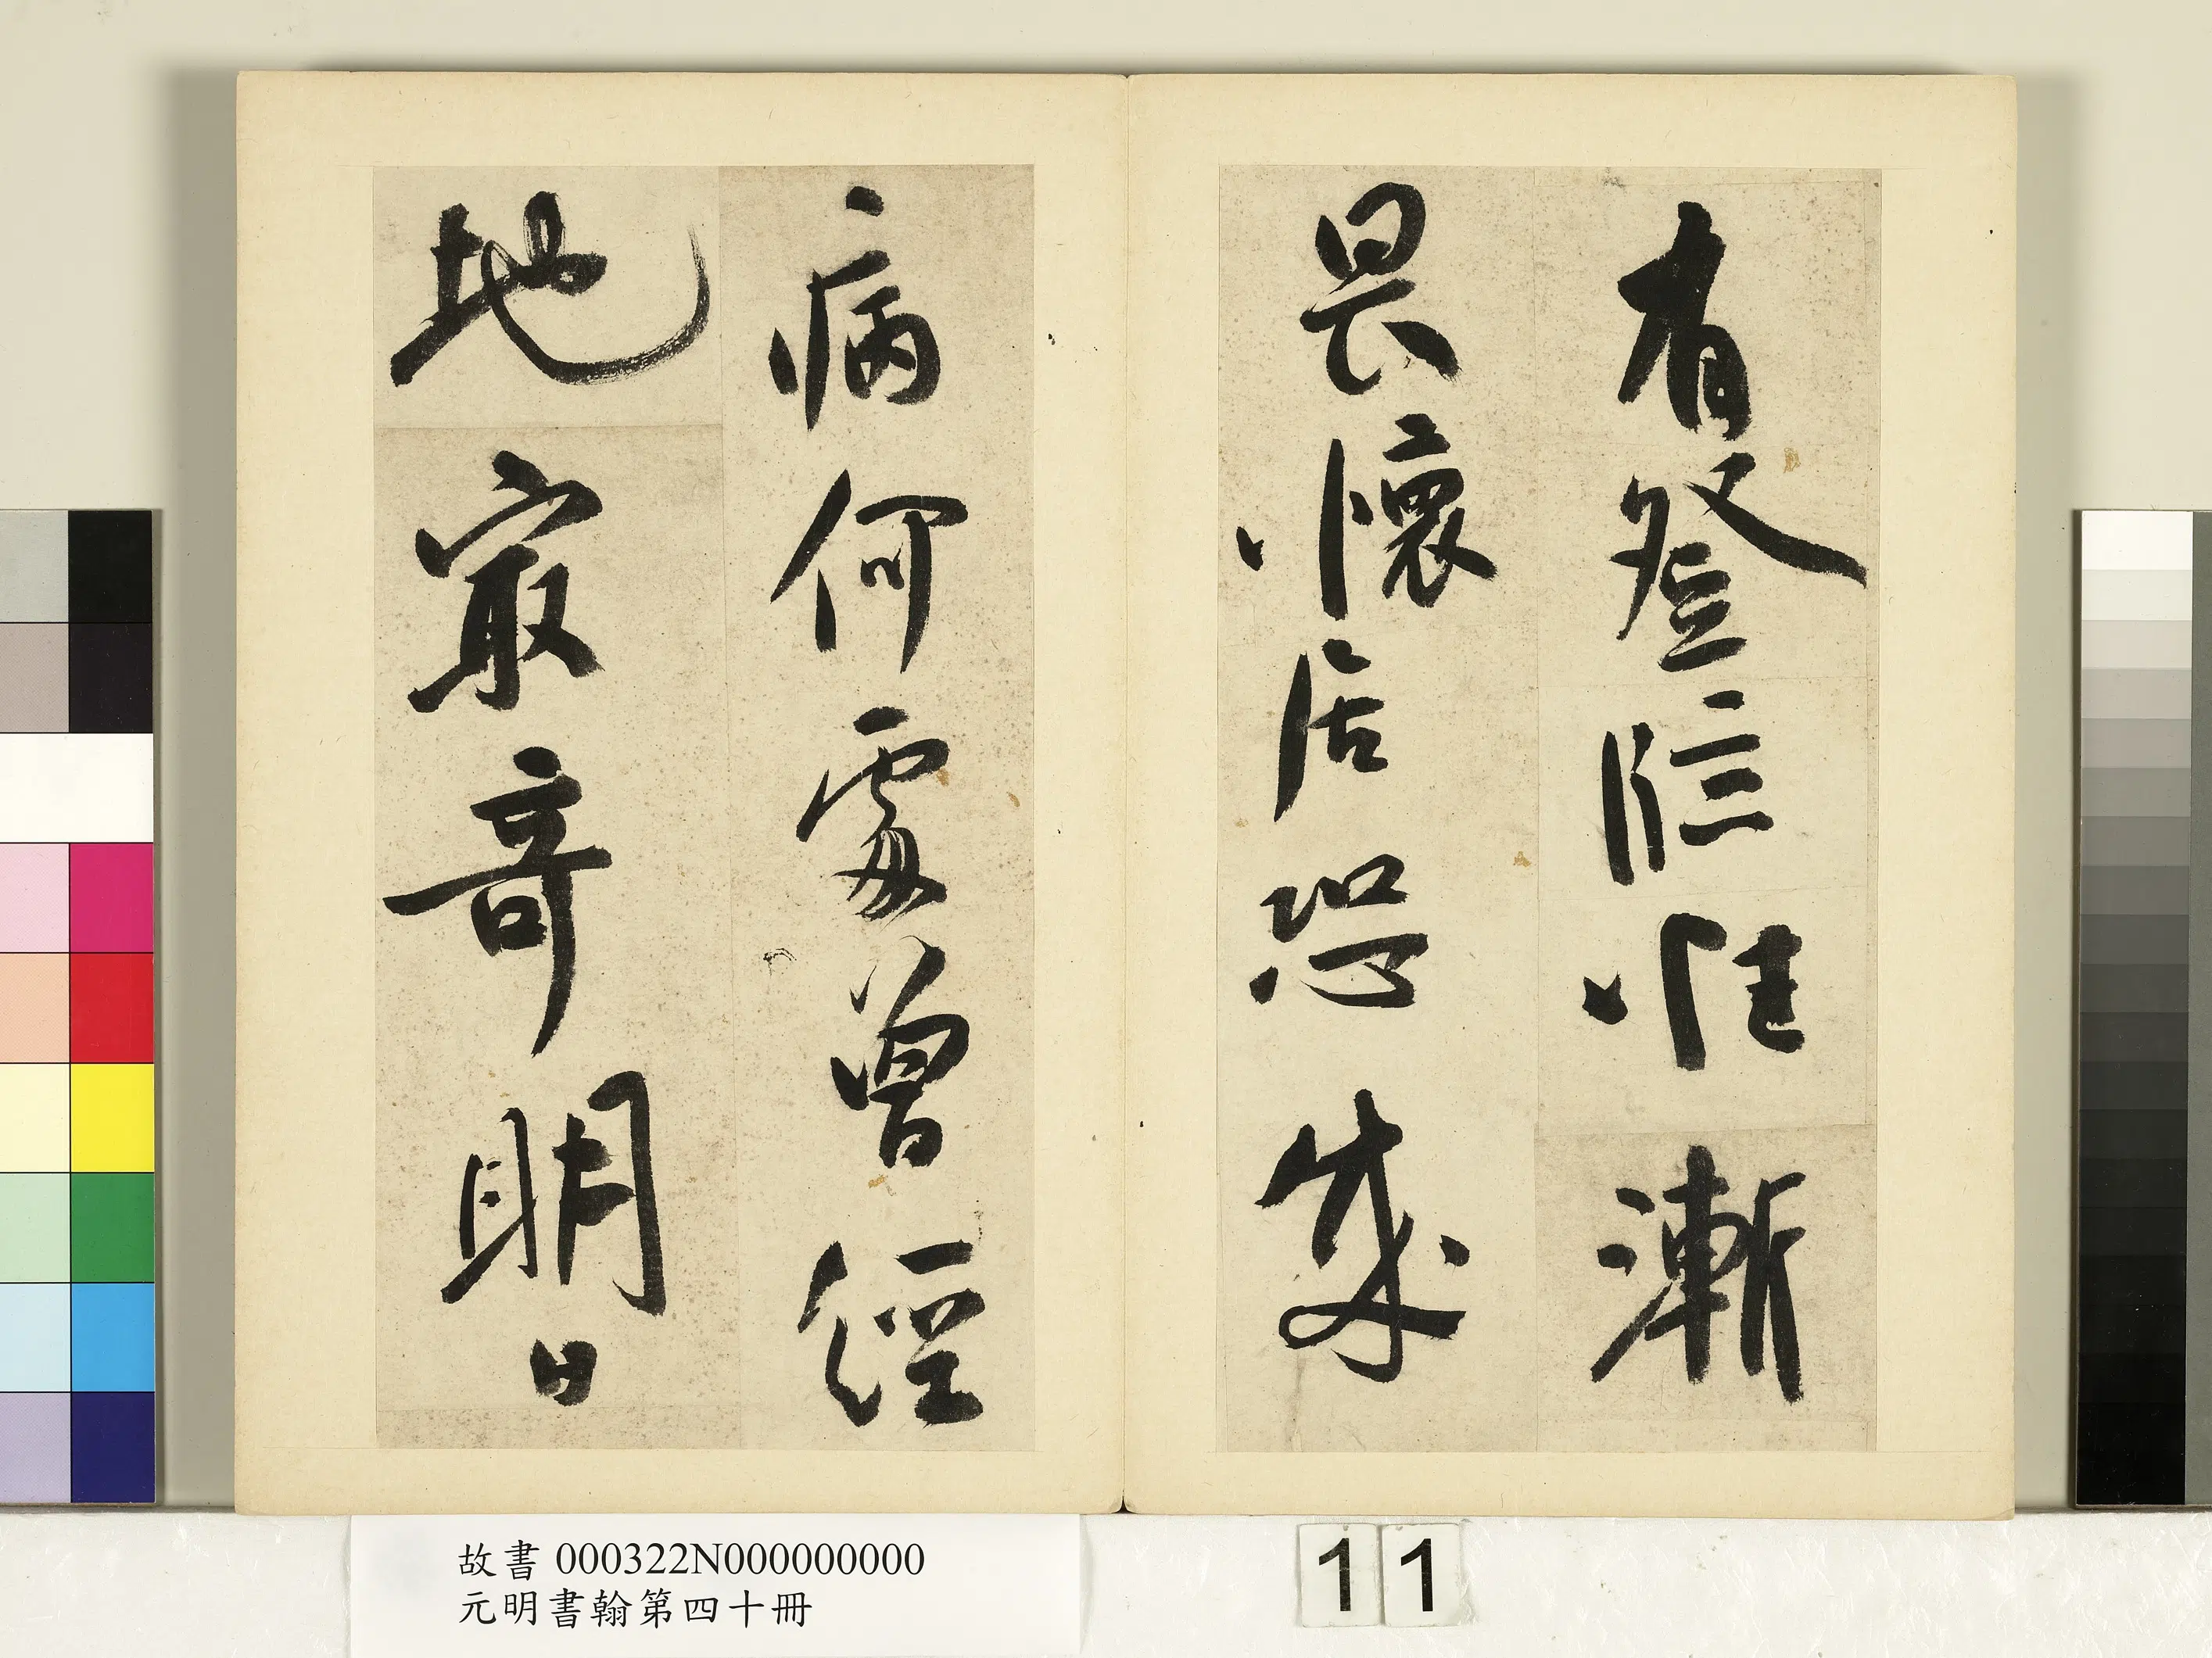 有登臨惟漸
畏懷居恐成
病何處曾經
地最奇明日
故書000322N000000000
元明書翰第四十冊
11